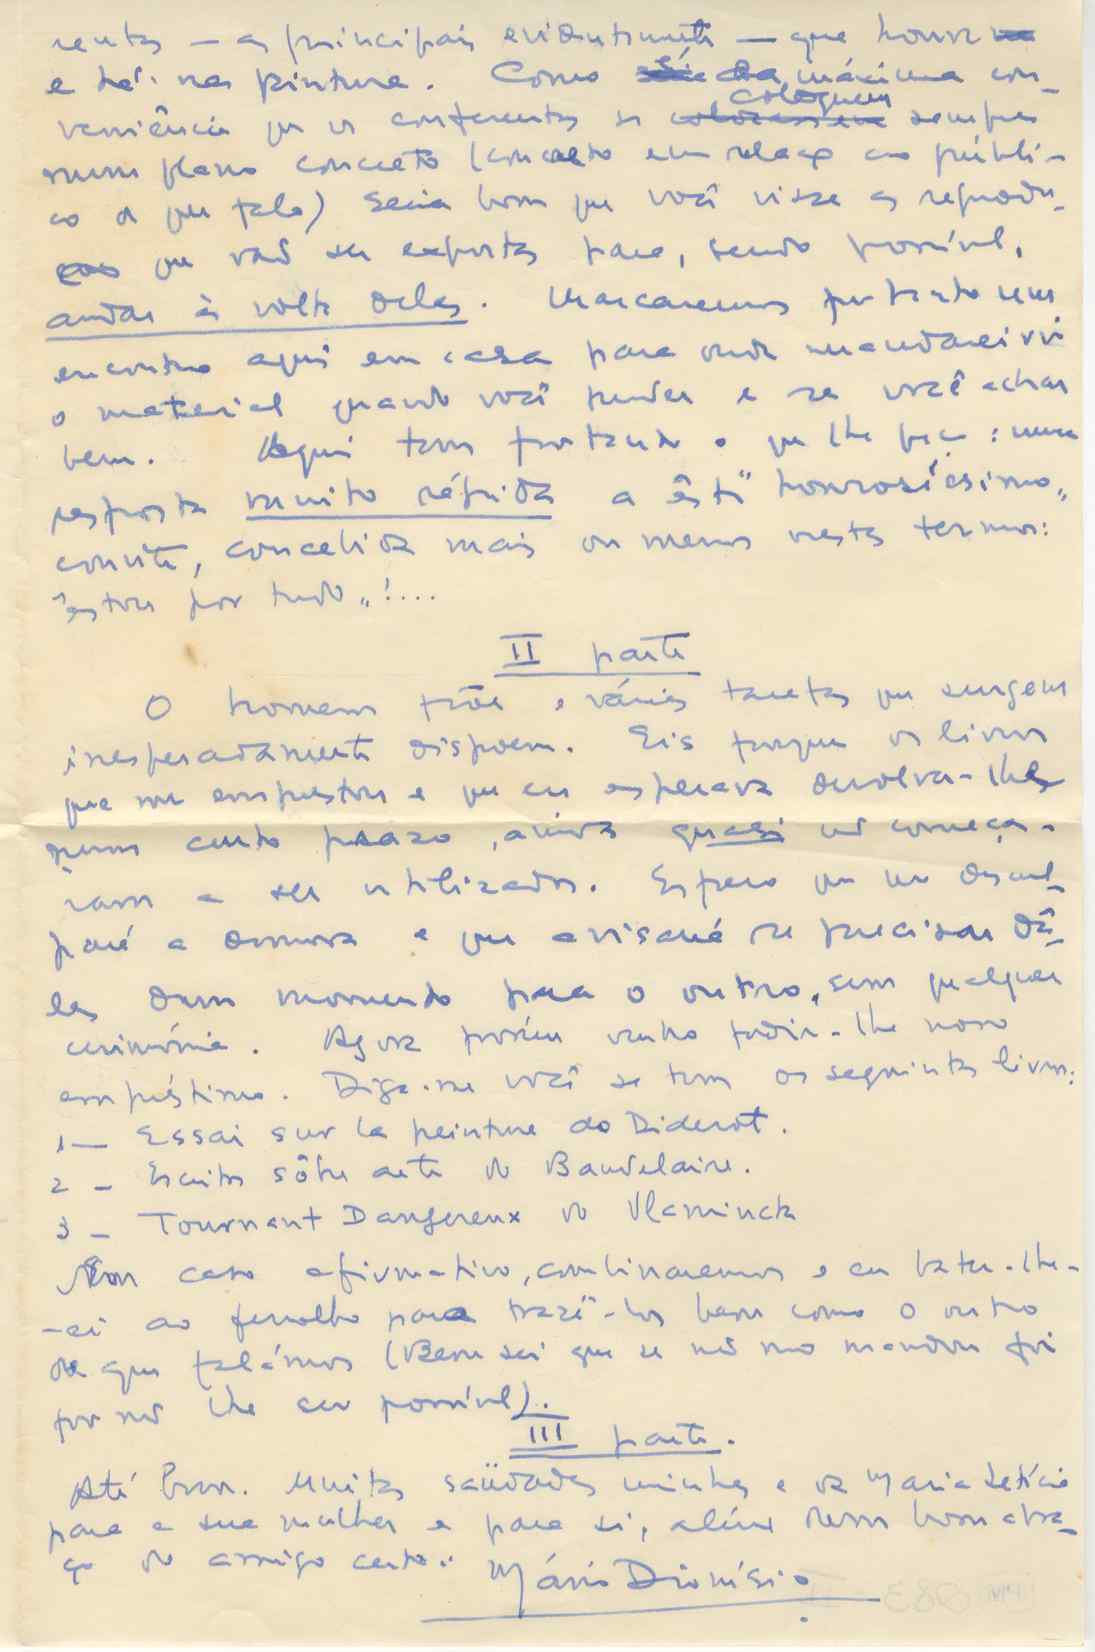 rentes — as principais evidentemente — que houve
e há na pintura. Como é da máxima con-
veniência que os conferentes se coloquem sempre
num plano concreto (concreto em relação ao públi-
co a que fala) seria bom que você visse as reprodu-
ções que vão ser expostas para, sendo possível,
andar à volta delas. Marcaremos portanto um
encontro aqui em casa para onde mandarei vir
o material quando você puder e se você achar
bem. Aqui tem portanto o que lhe peço: uma
resposta muito rápida a êste "honrosíssimo"
convite, concebida mais ou menos nestes termos:
"estou por tudo"!....
II parte
O homem põe e várias tarefas que surgem
inesperadamente dispoem. Eis porque os livros
que me emprestou e que eu esperava devolver-lhe
num certo prazo, ainda quasi não começa-
ram a ser utilizados. Espero que me descul-
pará a demora e que avisará se precisar dê-
les dum momento para o outro, sem qualquer
cerimónia. Agora porém venho pedir-lhe novo
empréstimo. Diga-me você se tem os seguintes livros:
1 — Essai sur la peinture do Diderot.
2 — Escritos sôbre arte do Baudelaire.
3 — Tournant Dangereux do Vlaminck
Em caso afirmativo, combinaremos e eu bater-lhe-
-ei ao ferrolho para trazê-los bem como o outro
de que falámos (Bem sei que se não mo mandou foi
por não lhe ser possível).
III parte.
Até breve. Muitas saüdades minhas e da Maria Letícia
para a sua mulher e para si, além dum bom abra-
ço do amigo certo:
Mário Dionísio